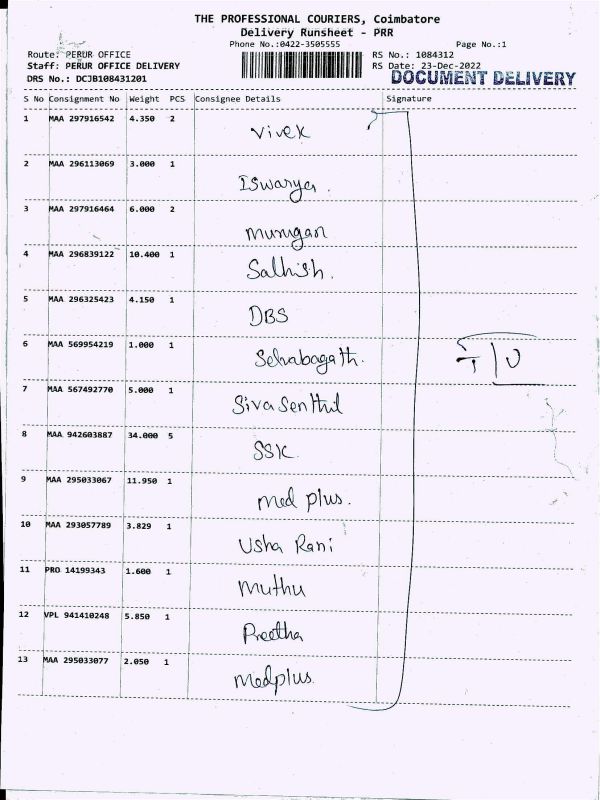 THE PROFESSIONAL COURIERS, Coimbatore
Delivery Runsheet - PRR
Phone No.:0422-3505555 Page No.:1
Route: PERUR OFFICE RS No.: 1084312
Staff: PERUR OFFICE DELIVERY RS Date: 23-Dec-2022
DRS No.: DCJB108431201 DOCUMENT DELIVERY
S No Consignment No Weight PCS Consignee Details Signature
1 MAA 297916542 4.350 2
Vivek
2 MAA 296113069 3.000 1
Iswarya.
3 MAA 297916464 6.000 2
Murugan
4 MAA 296839122 10.400 1
Sathish.
5 MAA 296325423 4.150 1
DBS
6 MAA 569954219 1.000 1
Selvabagath.
7 MAA 567492770 5.000 1
Siva Senthil
8 MAA 942603887 34.000 5
SSK
9 MAA 295033067 11.950 1
Med plus.
10 MAA 293057789 3.829 1
Usha Rani
11 PRO 14199343 1.600 1
Muthu
12 VPL 941410248 5.850 1
Preetha
13 MAA 295033077 2.050 1
Medplus.